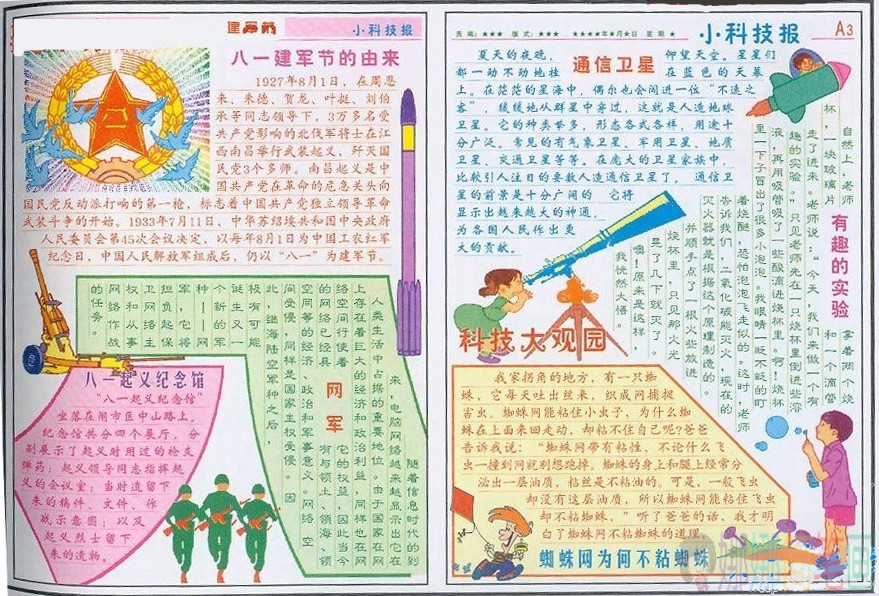 建军节
小科技报
八一建军节的由来
1927年8月1日，在周恩
来、朱德、贺龙、叶挺、刘伯
承等同志领导下，3万多名受
共产党影响的北伐军将士在江
西南昌举行武装起义，歼灭国
民党3个多师。南昌起义是中
国共产党在革命的危急关头向
国民党反动派打响的第一枪，标志着中国共产党独立领导革命
武装斗争的开始。1933年7月11日，中华苏维埃共和国中央政府
人民委员会第45次会议决定，以每年8月1日为中国工农红军
纪念日，中国人民解放军组成后，仍以“八一”为建军节。
网军
随着信息时代的到
来，电脑网络越来越显示出它在
人类生活中占据的重要地位。由于国家在网
上存在着巨大的经济和政治利益，同样也在网
络空间行使着
它的权益，因此当今
的网络已经具
有与领土、领海、领
空同等的经济、政治和军事意义。网络空
间受侵，同样是国家主权受侵。因
此，继海陆空军种之后，
极有可能
诞生又一
个新的军
种——网
军，它将
担负起保
卫网络主
权和从事
网络作战
的任务。
八一起义纪念馆
“八一起义纪念馆”
坐落在闹市区中山路上。
纪念馆共分四个展厅，分
别展示了起义时用过的枪支
弹药；起义领导同志指挥起
义的会议室；当时遗留下
来的稿件、文件、作
战示意图；以及
起义烈士留下
来的遗物。
责编：★★★ 版式：★★★ ★★★★年★月★日 星期★
小科技报
A3
通信卫星
夏天的夜晚，
仰望天空。星星们
都一动不动地挂
在蓝色的天幕
上。在茫茫的星海中，偶尔也会闯进一位“不速之
客”，缓缓地从群星中穿过，这就是人造地球
卫星。它的种类举多，形态各式各样，用途十
分广泛。常见的有气象卫星、军用卫星、地质
卫星、交通卫星等等。在庞大的卫星家族中，
比较引人注目的要数人造通信卫星了。通信卫
星的前景是十分广阔的 它将
显示出越来越大的神通，
为各国人民作出更
大的贡献。
有趣的实验
自然上，老师
拿着两个烧
杯，一块玻璃片
和一个滴管
走了进来。老师说：“今天，我们来做一个有
趣的实验。”只见老师先在一只烧杯里倒进些溶
液，再用吸管吸了一些酸滴进烧杯里。啊！烧杯
里一下子冒出了很多小泡泡。我眼睛一眨不眨的盯
着烧瓶，恐怕泡泡飞走似的。这时，老师
告诉我们，二氧化碳能灭火，现在的
灭火器就是根据这个原理制造的。
并顺手点了一根火柴放进
烧杯里，只见那火光
晃了几下就灭了。
噢！原来是这样，
我恍然大悟。
科技大观园
我家拐角的地方，有一只蜘
蛛，它每天吐出丝来，织成网捕捉
害虫。蜘蛛网能粘住小虫子，为什么蜘
蛛在上面来回走动，却粘不住自己呢?爸爸
告诉我说：“蜘蛛网带有粘性，不论什么飞
虫一撞到网就别想跑掉。蜘蛛的身上和腿上经常分
泌出一层油质，粘丝是不粘油的。可是，一般飞虫
却没有这层油质，所以蜘蛛网能粘住飞虫
却不粘蜘蛛。”听了爸爸的话，我才明
白了蜘蛛网不粘蜘蛛的道理。
蜘蛛网为何不粘蜘蛛